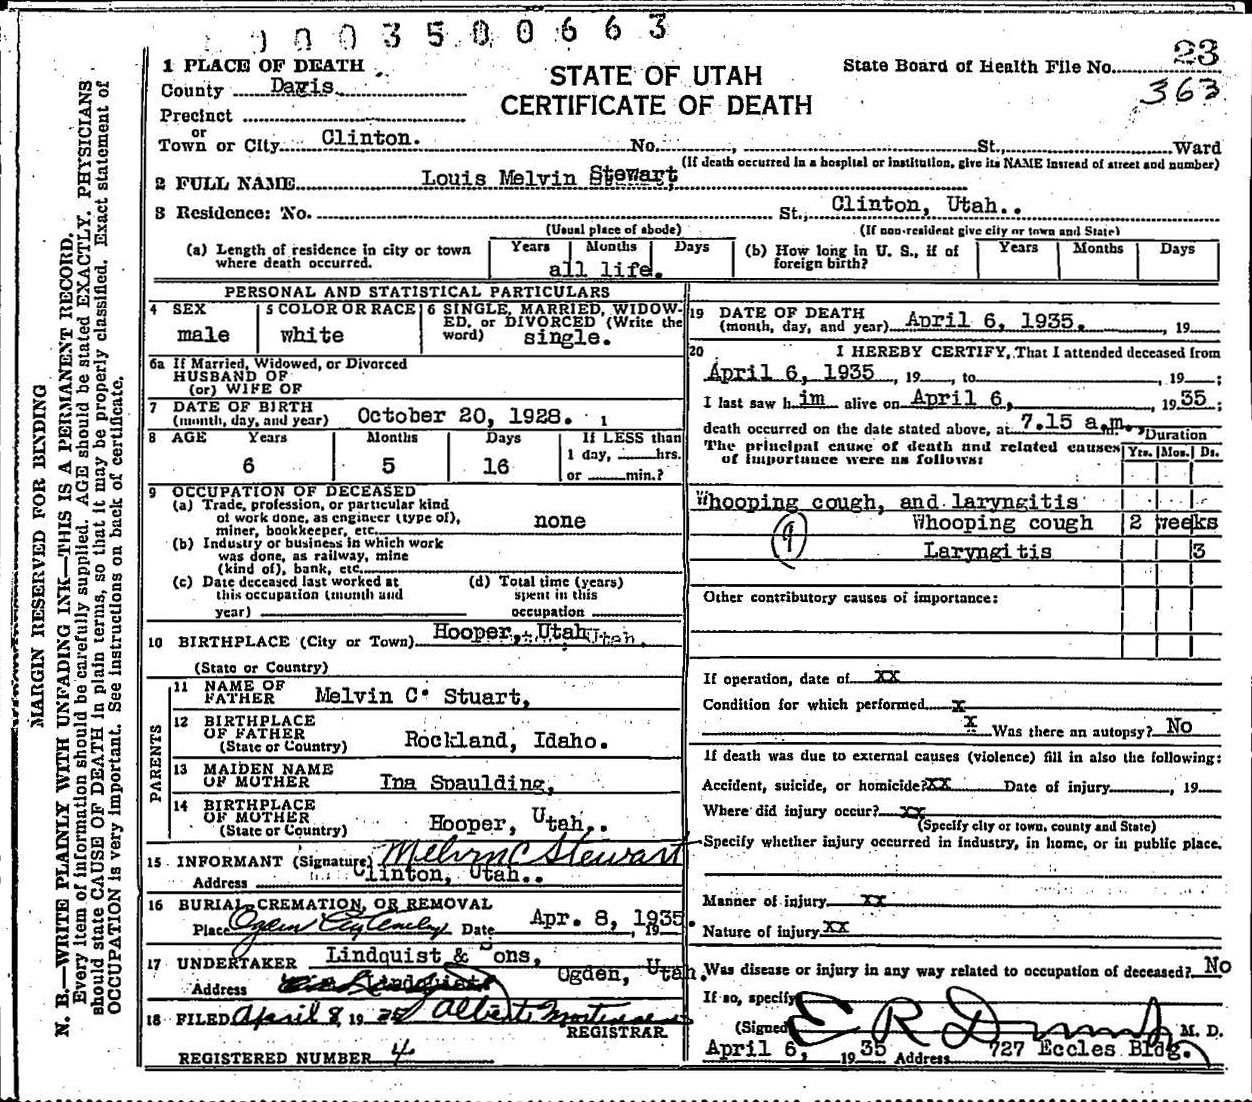 0003500663
1 PLACE OF DEATH
County Davis
Precinct
or
Town or City Clinton. No. , St., Ward
STATE OF UTAH
CERTIFICATE OF DEATH
State Board of Health File No. 23
363
(If death occurred in a hospital or institution, give its NAME instead of street and number)
2 FULL NAME Louis Melvin Stewart
3 Residence: No. St., Clinton, Utah..
(Usual place of abode) (If non-resident give city or town and State)
(a) Length of residence in city or town where death occurred. Years Months Days all life.
(b) How long in U. S., if of foreign birth? Years Months Days
PERSONAL AND STATISTICAL PARTICULARS
4 SEX male
5 COLOR OR RACE white
6 SINGLE, MARRIED, WIDOWED, or DIVORCED (Write the word) single.
6a If Married, Widowed, or Divorced
HUSBAND OF
(or) WIFE OF
7 DATE OF BIRTH
(month, day, and year) October 20, 1928.
8 AGE Years Months Days If LESS than
1 day, hrs.
6 5 16 or min.?
9 OCCUPATION OF DECEASED
(a) Trade, profession, or particular kind
of work done, as engineer (type of),
miner, bookkeeper, etc. none
(b) Industry or business in which work
was done, as railway, mine
(kind of), bank, etc.
(c) Date deceased last worked at
this occupation (month and
year)
(d) Total time (years)
spent in this
occupation
10 BIRTHPLACE (City or Town) Hooper, Utah
(State or Country)
PARENTS
11 NAME OF
FATHER Melvin C. Stuart,
12 BIRTHPLACE
OF FATHER
(State or Country) Rockland, Idaho.
13 MAIDEN NAME
OF MOTHER Ina Spaulding,
14 BIRTHPLACE
OF MOTHER
(State or Country) Hooper, Utah..
15 INFORMANT (Signature) Melvin C Stewart
Address Clinton, Utah..
16 BURIAL, CREMATION, OR REMOVAL
Place Ogden City Cemetery Date Apr. 8, 1935. 19
17 UNDERTAKER Lindquist & Sons,
Address Ogden, Utah.
18 FILED April 8, 1935 Albert Mortensen
REGISTRAR
REGISTERED NUMBER 4.
19 DATE OF DEATH
(month, day, and year) April 6, 1935. , 19
20 I HEREBY CERTIFY, That I attended deceased from
April 6, 1935 , 19 , to , 19 ;
I last saw him alive on April 6, , 1935;
death occurred on the date stated above, at 7.15 a.m.
The principal cause of death and related causes
of importance were as follows:
Duration
Yrs. Mos. Ds.
Whooping cough, and laryngitis
(9) Whooping cough 2 weeks
Laryngitis 3
Other contributory causes of importance:
If operation, date of xx
Condition for which performed x
x Was there an autopsy? No
If death was due to external causes (violence) fill in also the following:
Accident, suicide, or homicide? XX Date of injury , 19
Where did injury occur? xx
(Specify city or town, county and State)
Specify whether injury occurred in industry, in home, or in public place.
Manner of injury xx
Nature of injury xx
Was disease or injury in any way related to occupation of deceased? No
If so, specify
(Signed) E R M. D.
April 6, 1935 Address 727 Eccles Bldg.
MARGIN RESERVED FOR BINDING
N. B.—WRITE PLAINLY WITH UNFADING INK—THIS IS A PERMANENT RECORD.
Every item of information should be carefully supplied. AGE should be stated EXACTLY. PHYSICIANS
should state CAUSE OF DEATH in plain terms, so that it may be properly classified. Exact statement of
OCCUPATION is very important. See instructions on back of certificate.